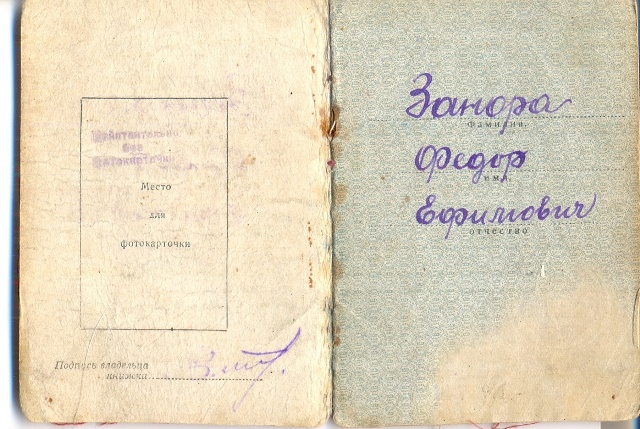 Действительно
без
фотокарточки
Место
для
фотокарточки
Подпись владельца
книжки
Занора
фамилия
Федор
имя
Ефимович
отчество